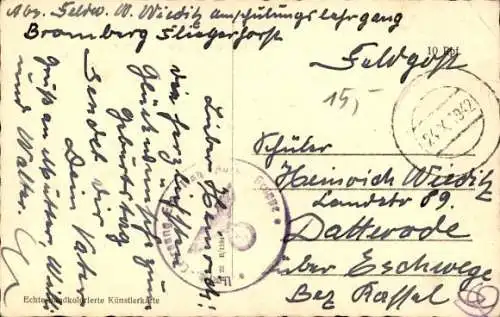 Abs. Feldw. W. Wieditz Umschulungslehrgang
Bromberg Fliegerhorst
10 Rpf.
Feldpost
15,-
24.7.1942
Lieber Heinrich!
Die herzlichsten
Glückwünsche zum
Geburtstag
sendet dir
Dein Vater
Gruß an Mutter, Willi
und Walter.
Schüler
Heinrich Wieditz
Landstr 89.
Datterode
über Eschwege
Bez Kassel
Echte handkolorierte Künstlerkarte